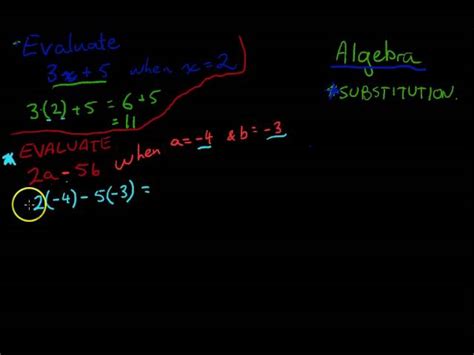 Evaluate
3x+5 when x=2
3·(2)+5 = 6+5
= 11
Algebra
*SUBSTITUTION.
* EVALUATE
2a-5b when a=-4 & b=-3
2(-4)-5(-3) =